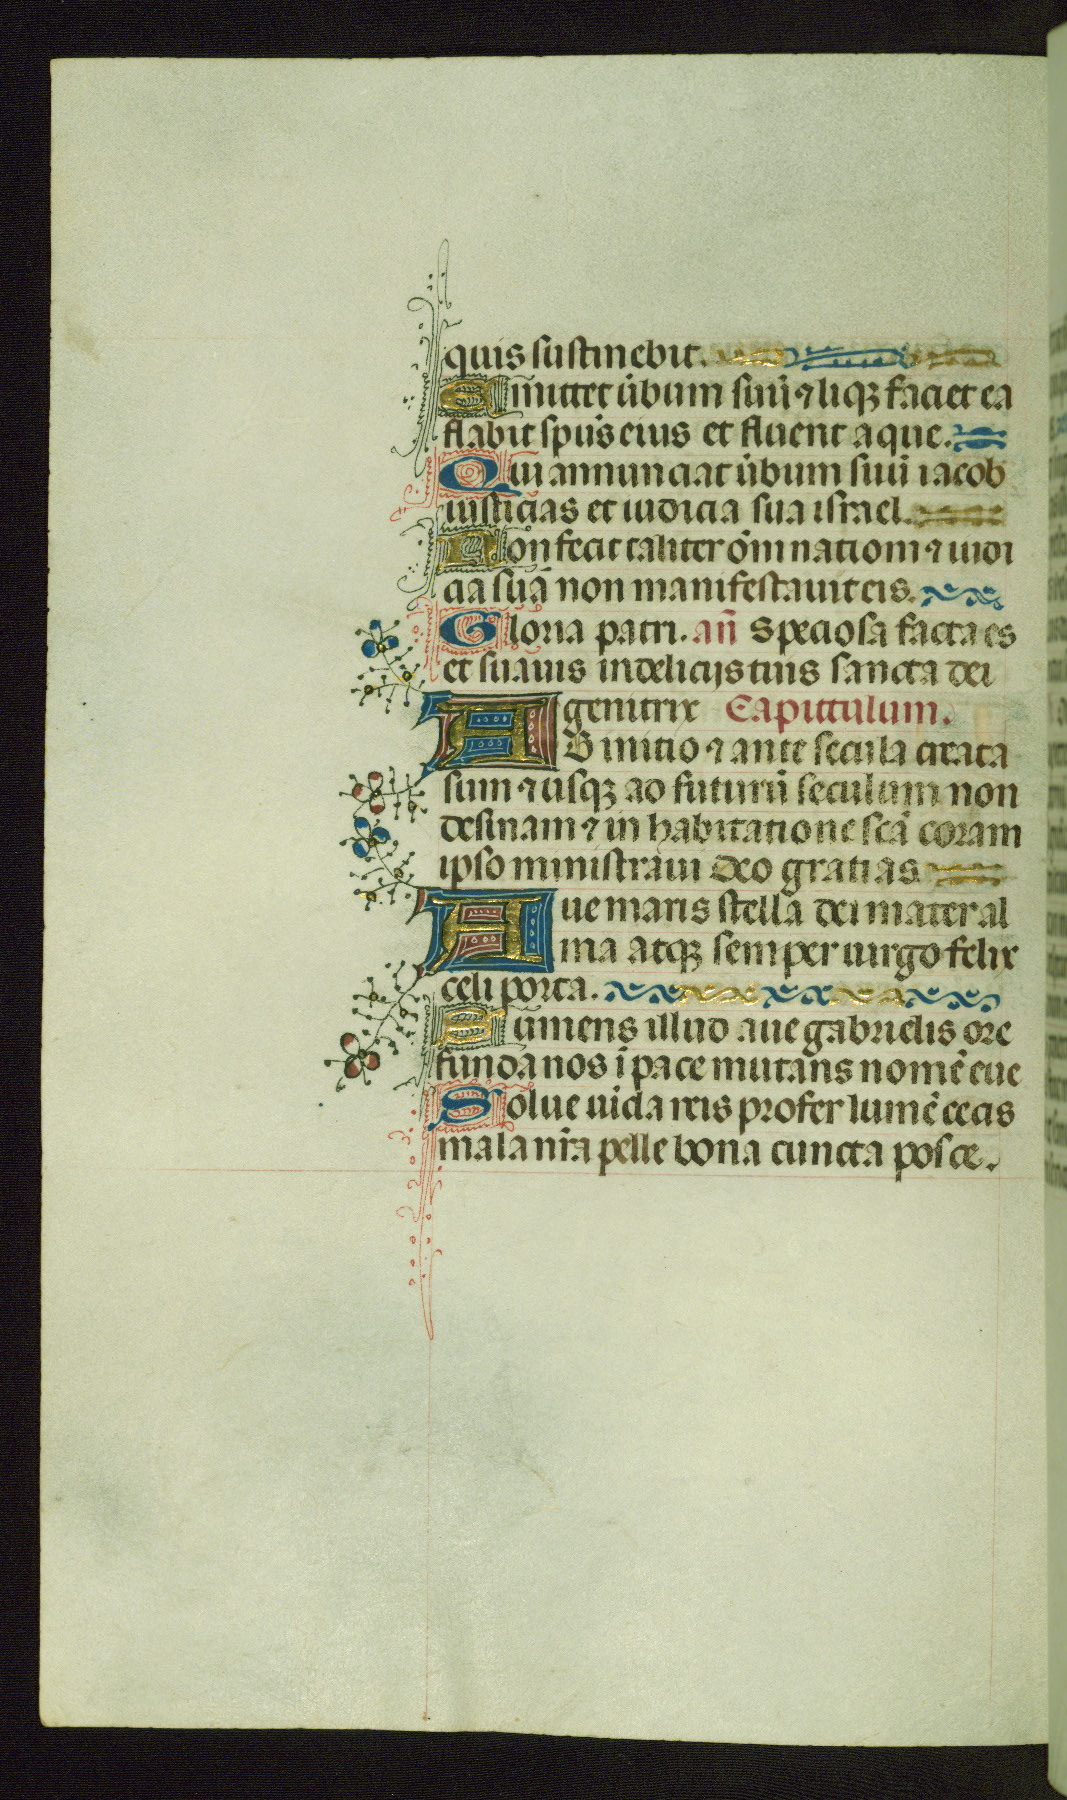 quis sustinebit.
Emittet ūbum suū ⁊ liq̄ꝫ faciet ea
flabit spūs eius et fluent aque.
Qui annunciat ūbum suū iacob
iusticias et iudicia sua israel.
Non fecit taliter ōmi nationi ⁊ iudi
cia sua non manifestauit eis.
Gloria patri. añ Speciosa facta es
et suauis in delicijs tuis sancta dei
genitrix Capittulum.
AB initio ⁊ ante secula creata
sum ⁊ usqꝫ ad futurū seculum non
desinam ⁊ in habitatione scā coram
ipso ministraui deo gratias
Aue maris stella dei mater al
ma atqꝫ semper uirgo felix
celi porta.
Sumens illud aue gabrielis ore
funda nos ī pace mutans nomē eue
Solue uicla reis profer lumē cecis
mala nr̄a pelle bona cuncta posce.